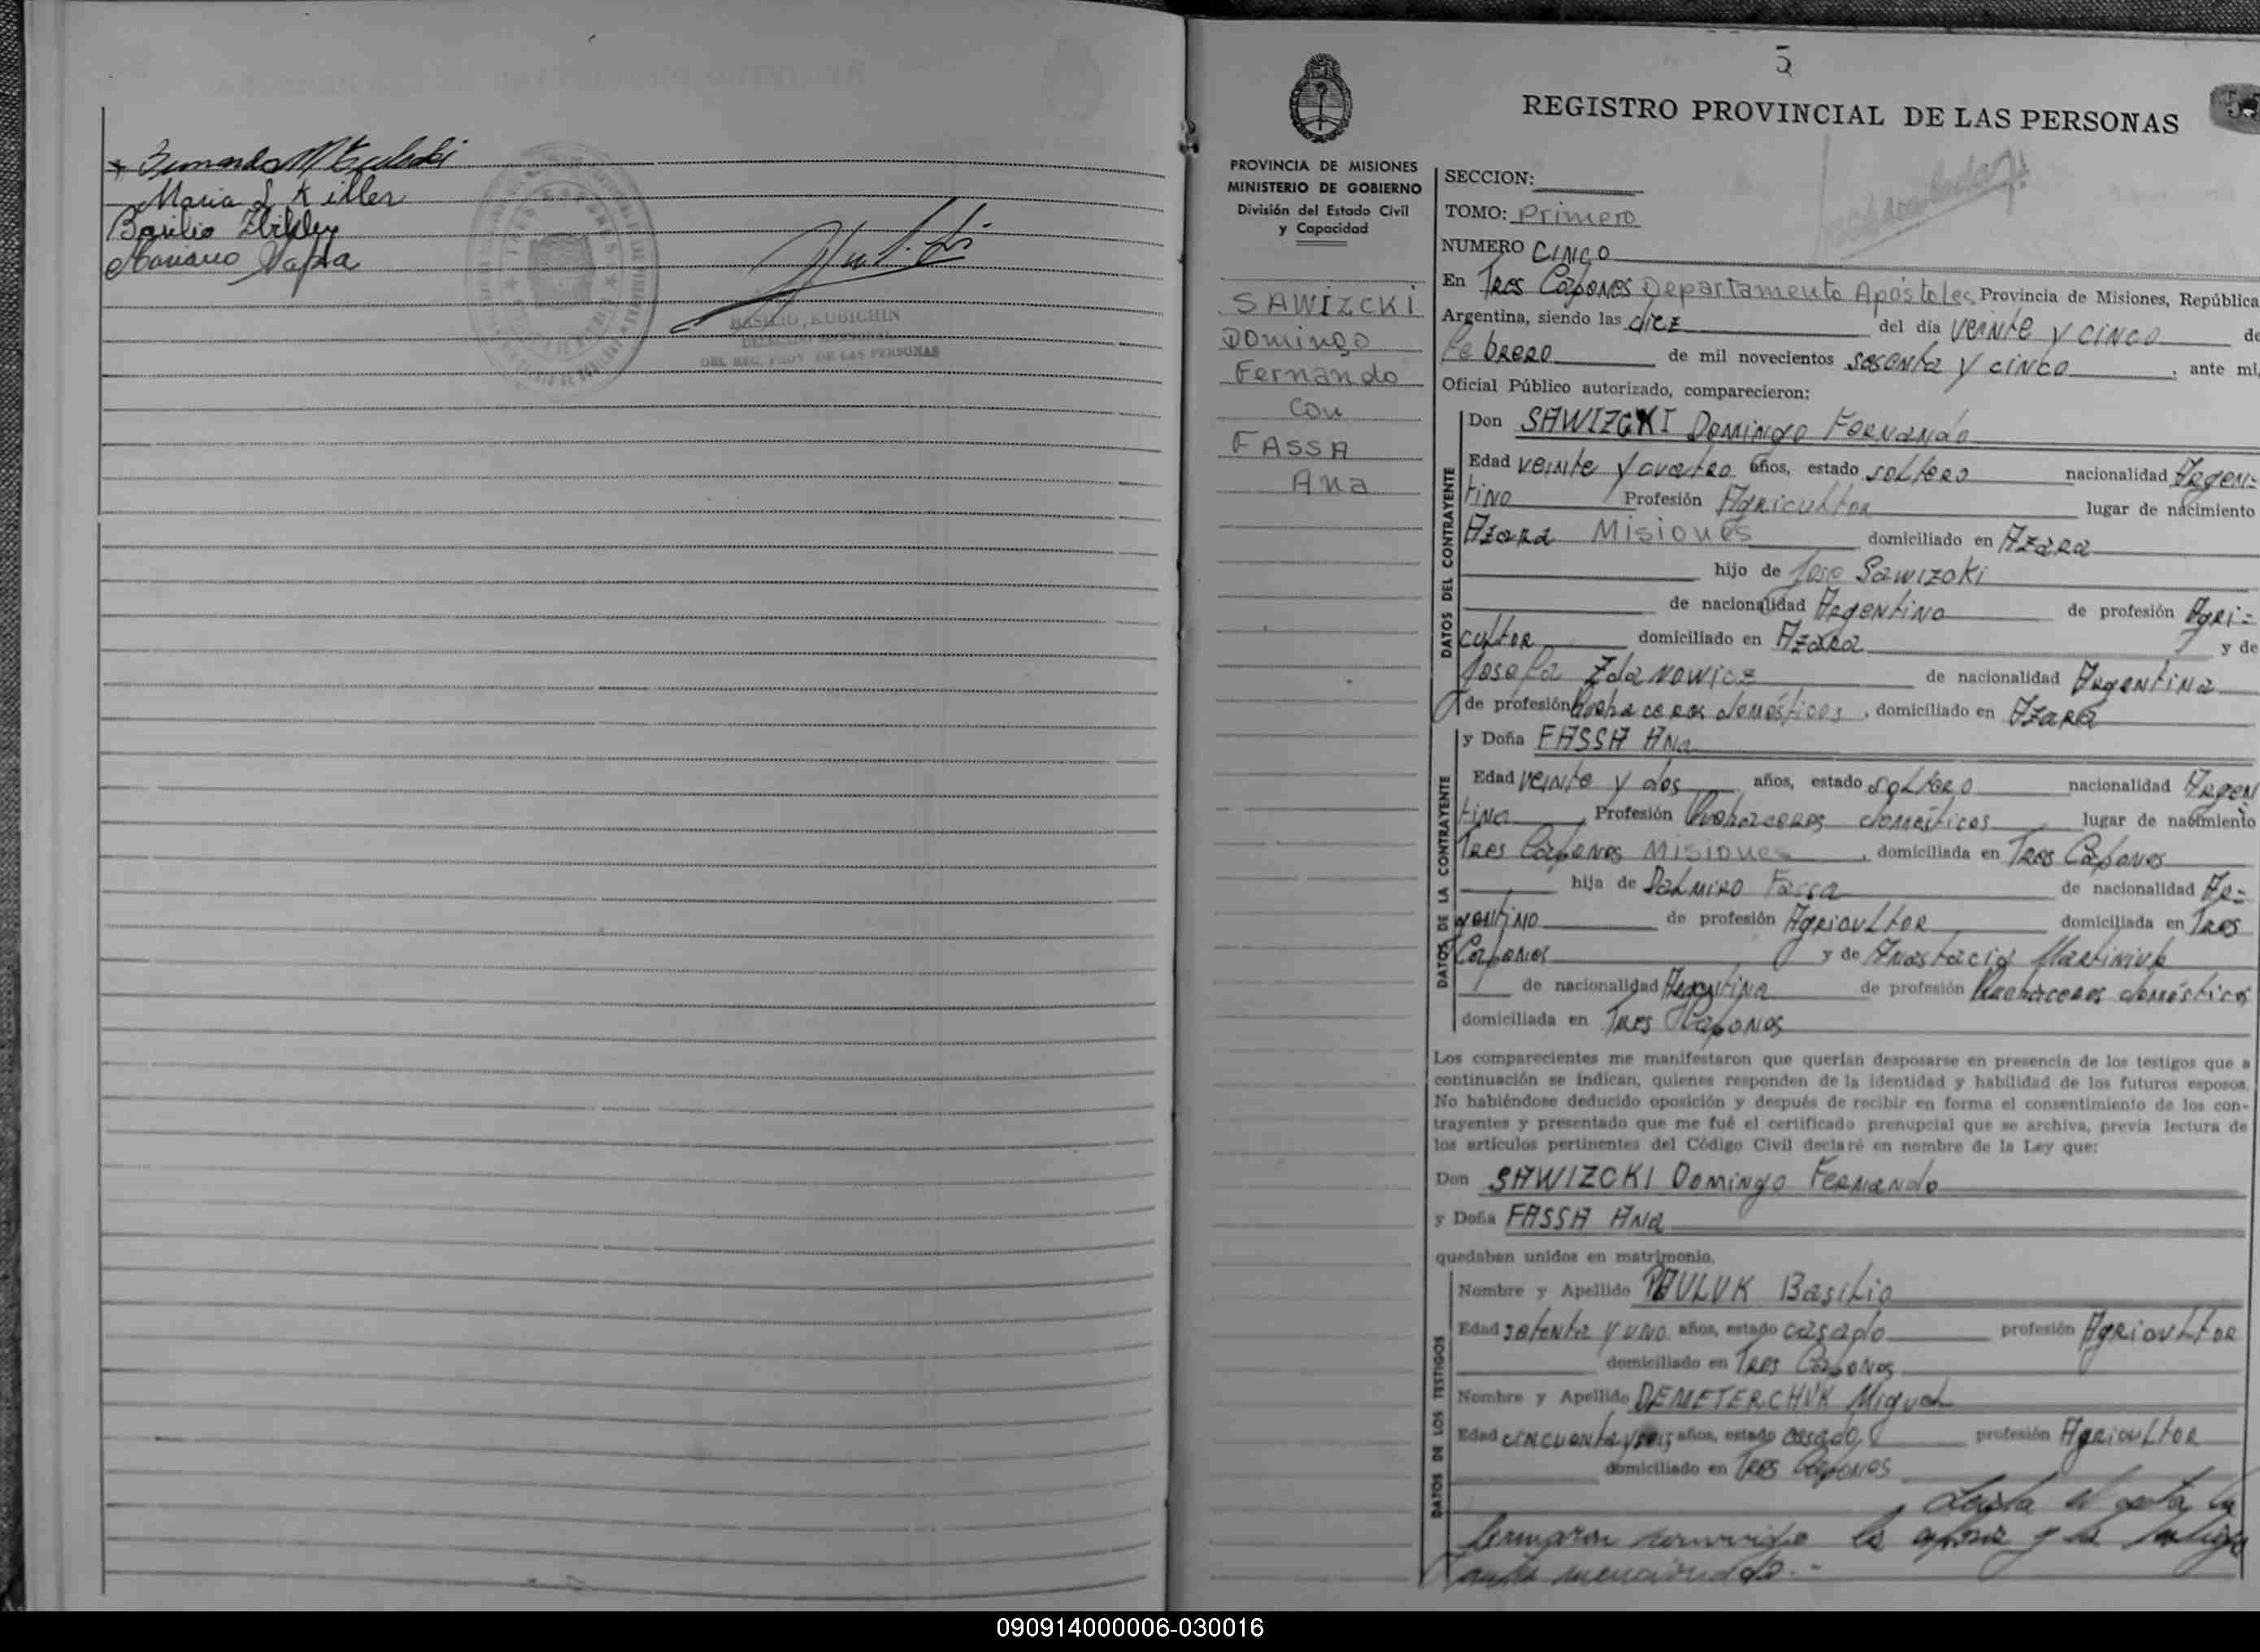 Maria L Killer
Basilio
Mariano
BASILIO KUBICHIN
DEL REG. PROV. DE LAS PERSONAS
5
REGISTRO PROVINCIAL DE LAS PERSONAS
PROVINCIA DE MISIONES
MINISTERIO DE GOBIERNO
División del Estado Civil
y Capacidad
SAWIZCKI
Domingo
Fernando
con
FASSA
Ana
SECCION:
TOMO: Primero
NUMERO CINCO
En Tres Capones Departamento Apóstoles Provincia de Misiones, República
Argentina, siendo las diez del día veinte y cinco de
Febrero de mil novecientos sesenta y cinco, ante mi,
Oficial Público autorizado, comparecieron:
DATOS DEL CONTRAYENTE
Don SAWIZCKI Domingo Fernando
Edad veinte y cuatro años, estado soltero nacionalidad Argen=
tino Profesión Agricultor lugar de nacimiento
Azara Misiones domiciliado en Azara
hijo de Jose Sawizcki
de nacionalidad Argentino de profesión Agri=
cultor domiciliado en Azara y de
Josefa Zdanowicz de nacionalidad Argentina
de profesión Quehaceres domésticos, domiciliado en Azara
DATOS DE LA CONTRAYENTE
y Doña FASSA Ana
Edad veinte y dos años, estado soltera nacionalidad Argen
tina, Profesión Quehaceres domésticos lugar de nacimiento
Tres Capones Misiones, domiciliada en Tres Capones
hija de Dalmiro Fassa de nacionalidad Ar=
gentino de profesión Agricultor domiciliada en Tres
Capones y de Anastacia Martiniuk
de nacionalidad Argentina de profesión Quehaceres domésticos
domiciliada en Tres Capones
Los comparecientes me manifestaron que querían desposarse en presencia de los testigos que a
continuación se indican, quienes responden de la identidad y habilidad de los futuros esposos.
No habiéndose deducido oposición y después de recibir en forma el consentimiento de los con-
trayentes y presentado que me fué el certificado prenupcial que se archiva, previa lectura de
los artículos pertinentes del Código Civil declaré en nombre de la Ley que:
Don SAWIZCKI Domingo Fernando
y Doña FASSA Ana
quedaban unidos en matrimonio.
DATOS DE LOS TESTIGOS
Nombre y Apellido PAULUK Basilio
Edad setenta y uno años, estado casado profesión Agricultor
domiciliado en Tres Capones
Nombre y Apellido DEMETERCHUK Miguel
Edad cincuenta y seis años, estado casado profesión Agricultor
domiciliado en Tres Capones
Leida el acta la
firmaron conmigo los esposos y los testigos
antes mencionados.-
090914000006-030016